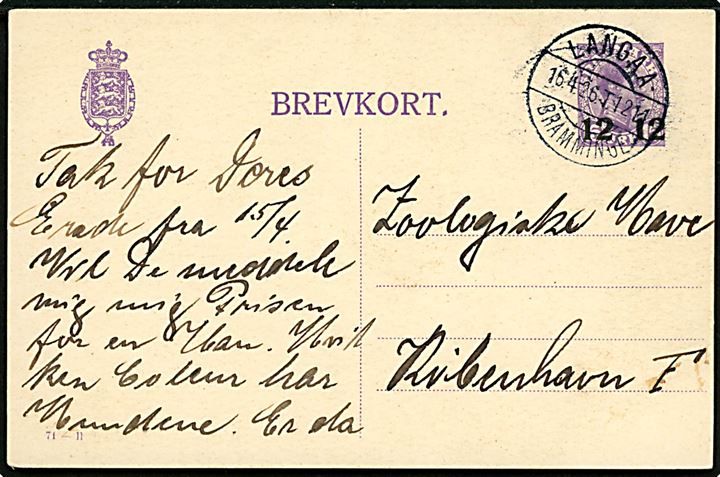 BREVKORT.
LANGAA
16.4.26
BRAMMINGE
12 12
Tak for Deres
Erade fra 15/4.
Vil De meddele
mig mig Prisen
for en Han. Hvil
ken Coleur har
Hundene. Er da
Zoologiske Have
København F
71 — H